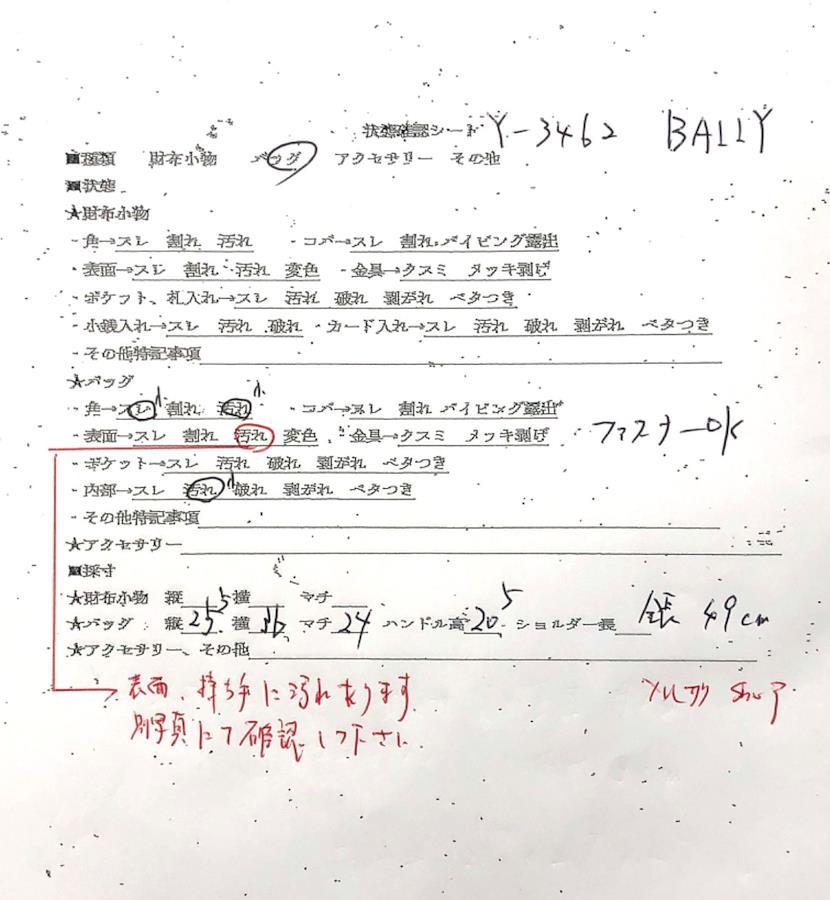 状態確認シート Y-3462 BALLY
■種類 財布小物 バッグ アクセサリー その他
■状態
★財布小物
・角→スレ 割れ 汚れ ・コバ→スレ 割れ パイピング露出
・表面→スレ 割れ 汚れ 変色 ・金具→クスミ メッキ剥げ
・ポケット、札入れ→スレ 汚れ 破れ 剥がれ ベタつき
・小銭入れ→スレ 汚れ 破れ ・カード入れ→スレ 汚れ 破れ 剥がれ ベタつき
・その他特記事項
★バッグ
小 小
・角→スレ 割れ 汚れ ・コバ→スレ 割れ パイピング露出
・表面→スレ 割れ 汚れ 変色 ・金具→クスミ メッキ剥げ ファスナーOK
・ポケット→スレ 汚れ 破れ 剥がれ ベタつき
・内部→スレ 汚れ 小 破れ 剥がれ ベタつき
・その他特記事項
★アクセサリー
■採寸
★財布小物 縦 横 マチ
★バッグ 縦 25.5 横 36 マチ 24 ハンドル高 20.5 ショルダー長 全長 49cm
★アクセサリー、その他
表面、持ち手に汚れあります
別写真にて確認して下さい